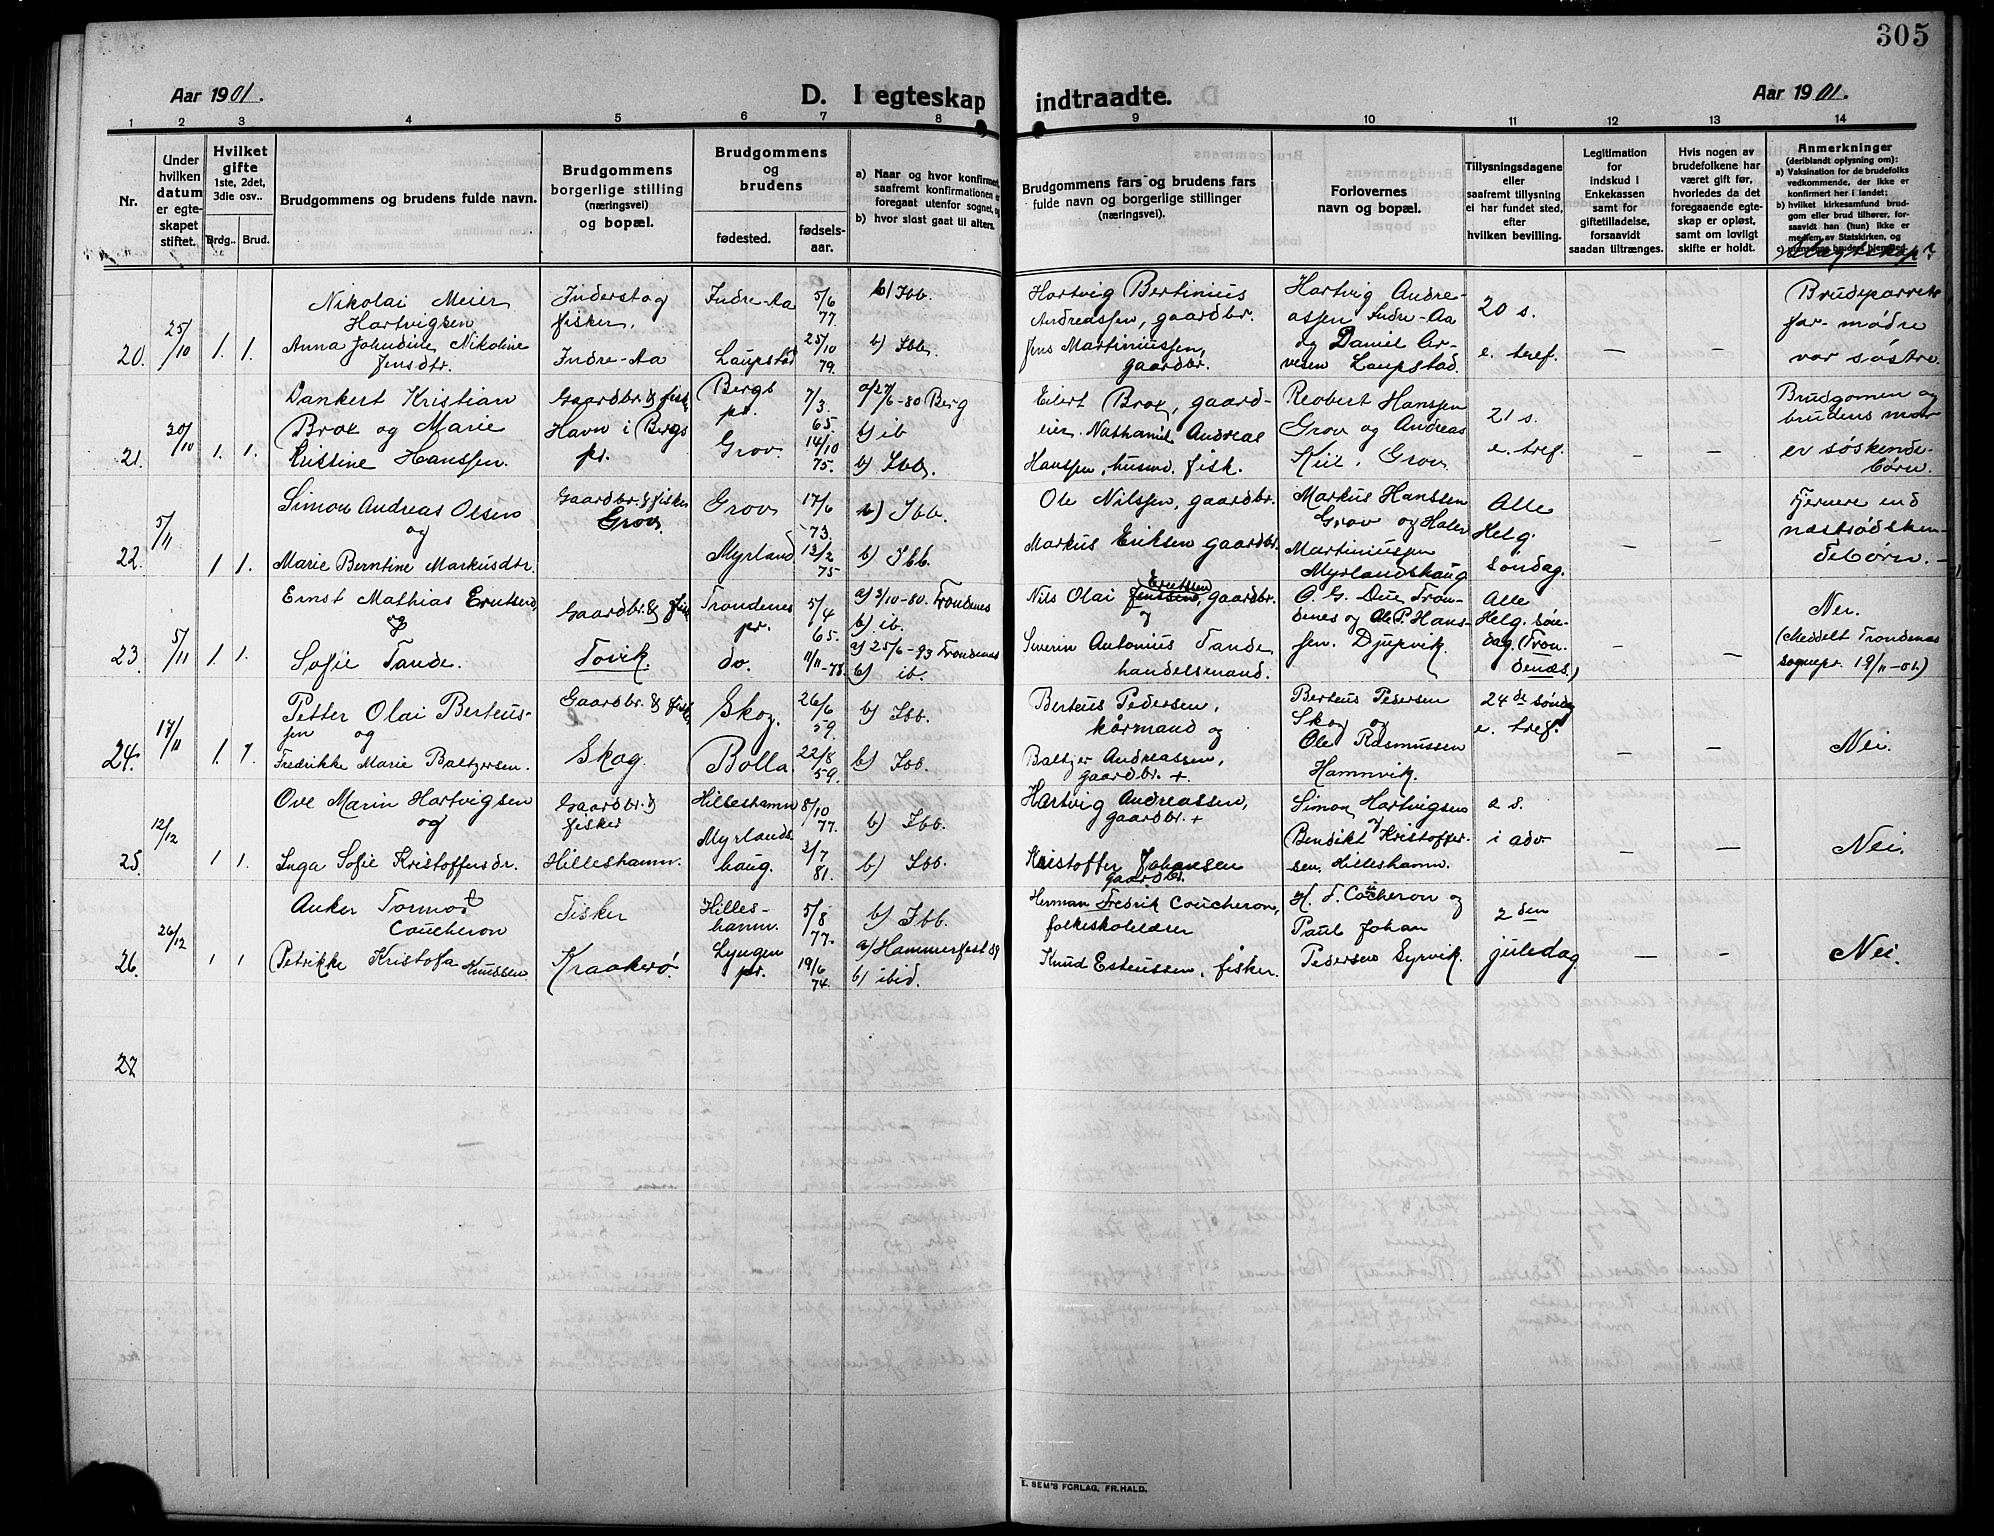 305
Aar 1901.
D. I egteskap indtraadte.
Aar 1901.
1 2 3 4 5 6 7 8 9 10 11 12 13 14
Nr.
Under hvilken datum er egteskapet stiftet.
Hvilket gifte 1ste, 2det, 3die osv..
Brdg.. Brud.
Brudgommens og brudens fulde navn.
Brudgommens borgerlige stilling (næringsvei) og bopæl.
Brudgommens og brudens
fødested. fødselsaar.
a) Naar og hvor konfirmert, saafremt konfirmationen er foregaat utenfor sognet, og
b) hvor sidst gaat til alters.
Brudgommens fars og brudens fars fulde navn og borgerlige stillinger (næringsvei).
Forlovernes navn og bopæl.
Tillysningsdagene eller saafremt tillysning ei har fundet sted, efter hvilken bevilling.
Legitimation for indskud i Enkekassen samt for giftetilladelse, forsaavidt saadan tiltrænges.
Hvis nogen av brudefolkene har været gift før, hvorledes da det foregaaende egteskap er opløst, samt om lovligt skifte er holdt.
Anmerkninger (deriblandt oplysning om):
a) Vaksination for de brudefolks vedkommende, der ikke er konfirmert her i landet;
b) hvilket kirkesamfund brudgom eller brud tilhører, forsaavidt han (hun) ikke er medlem av Statskirken, og
Slegtskap?
20. 25/10 1. 1.
Nikolai Meier
Hartvigsen
Anna Johndine Nikoline
Jensdtr.
Inderst og
fisker.
Indre-Aa
Indre-Aa 5/6 77.
Laupstad 25/10 79.
b) Ibb.
b) Ibb.
Hartvig Bertinius
Andreassen, gaardbr.
Jens Martiniussen,
gaardbr.
Hartvig Andre-
assen Indre-Aa
og Daniel Ar-
nesen Laupstad.
20 s.
e. tref.
— —
Brudeparrets
far-mødre
var søstre.
21. 20/10 1. 1.
Dankert Kristian
Brox og Marie
Kristine Hanssen.
Gaardbr. & fisk.
Havn i Bergs
pr.
Bergs
pr. 7/3 65.
Grov. 14/10 75.
a) 27/6-80 Berg
b) ib
b) Ibb.
Eilert Brox, gaard-
eier. Nathanil Andreas
Hanssen, husmd. fisk.
Reobert Hanssen
Grov og Andreas
Kiil, Grov
21 s.
e. tref.
— —
Brudgomen og
brudens mor
er søskende-
børn.
22. 5/11 1 1.
Simon Andreas Olsen
og
Marie Berntine Markusdtr.
Gaardbr. & fisker
Grov
Grov 17/6 73.
Myrland 13/2 75
b) Ibb.
b) Ibb.
Ole Nilssen, gaardbr.
Markus Eriksen gaardbr.
Markus Hanssen
Grov og
Martiniussen
Myrlandshaug
Alle
Helg.
søndag.
— —
Fjernere end
næstsødsken-
debørn.
23. 5/11 1. 1.
Ernst Mathias Erutsen,
og
Sofie Tande.
Gaardbr. & fisk.
Tovik.
Trondenes
pr. 5/4 65.
do. 11/11-78.
a) 3/10-80. Trondenes
b) ib.
a) 25/6-93 Trondenes
b) ib.
Nils Olai Jenssen, Erutsen gaardbr.
og
Severin Antonius Tande
handelsmand.
O. G. Due Tron-
denes og Ole P. Hans-
sen. Djupvik.
Alle
Helg. søn-
dag. (Tron-
denæs.)
—
Nei.
(Meddelt Trondenæs
sognepr. 19/11-01.)
24. 17/11 1. 1.
Petter Olai Berteus-
sen og
Fredrikke Marie Baltzersen.
Gaardbr. & fisk.
Skog.
Skog. 26/6 59.
Bolla. 22/8 59.
b) Ibb.
b) Ibb.
Berteus Pedersen,
kårmand og
Baltzer Andreassen,
gaardbr. +.
Berteus Pedersen
Skog og
Ole Rasmussen
Hamnvik.
24de sønda
e. tref.
— —
Nei.
25. 12/12 1 1.
Ove Marin Hartvigsen
og
Inga Sofie Kristoffersdr.
Gaardbr. &
fisker
Hilleshamn.
Hilleshamn 8/10 77.
Myrlands
haug. 2/7 81.
b) Ibb.
b) Ibb.
Hartvig Andreassen,
gaardbr. +
Kristoffer Johansen
gaardbr.
Simon Hartvigsen
og
Bendikt Kristoffer-
sen. Hilleshamn.
2 s.
i adv
— —
Nei.
26. 26/12 1 1
Anker Tormod
Coucheron
Petrikke Kristofa Knussen
Fisker
Kraakerø.
Hilles-
hamn. 5/8 77.
Lyngen
pr. 19/6 74.
b) Ibb.
a) Hammerfest 89
b) ibid.
Herman Fredrik Coucheron,
folkeskolelærer
Knud Esteussen, fisker.
H. F. Coucheron og
Paul Johan
Pedersen Syrvik.
2den
juledag.
— —
Nei.
27
E. SEM'S FORLAG, FR.HALD.